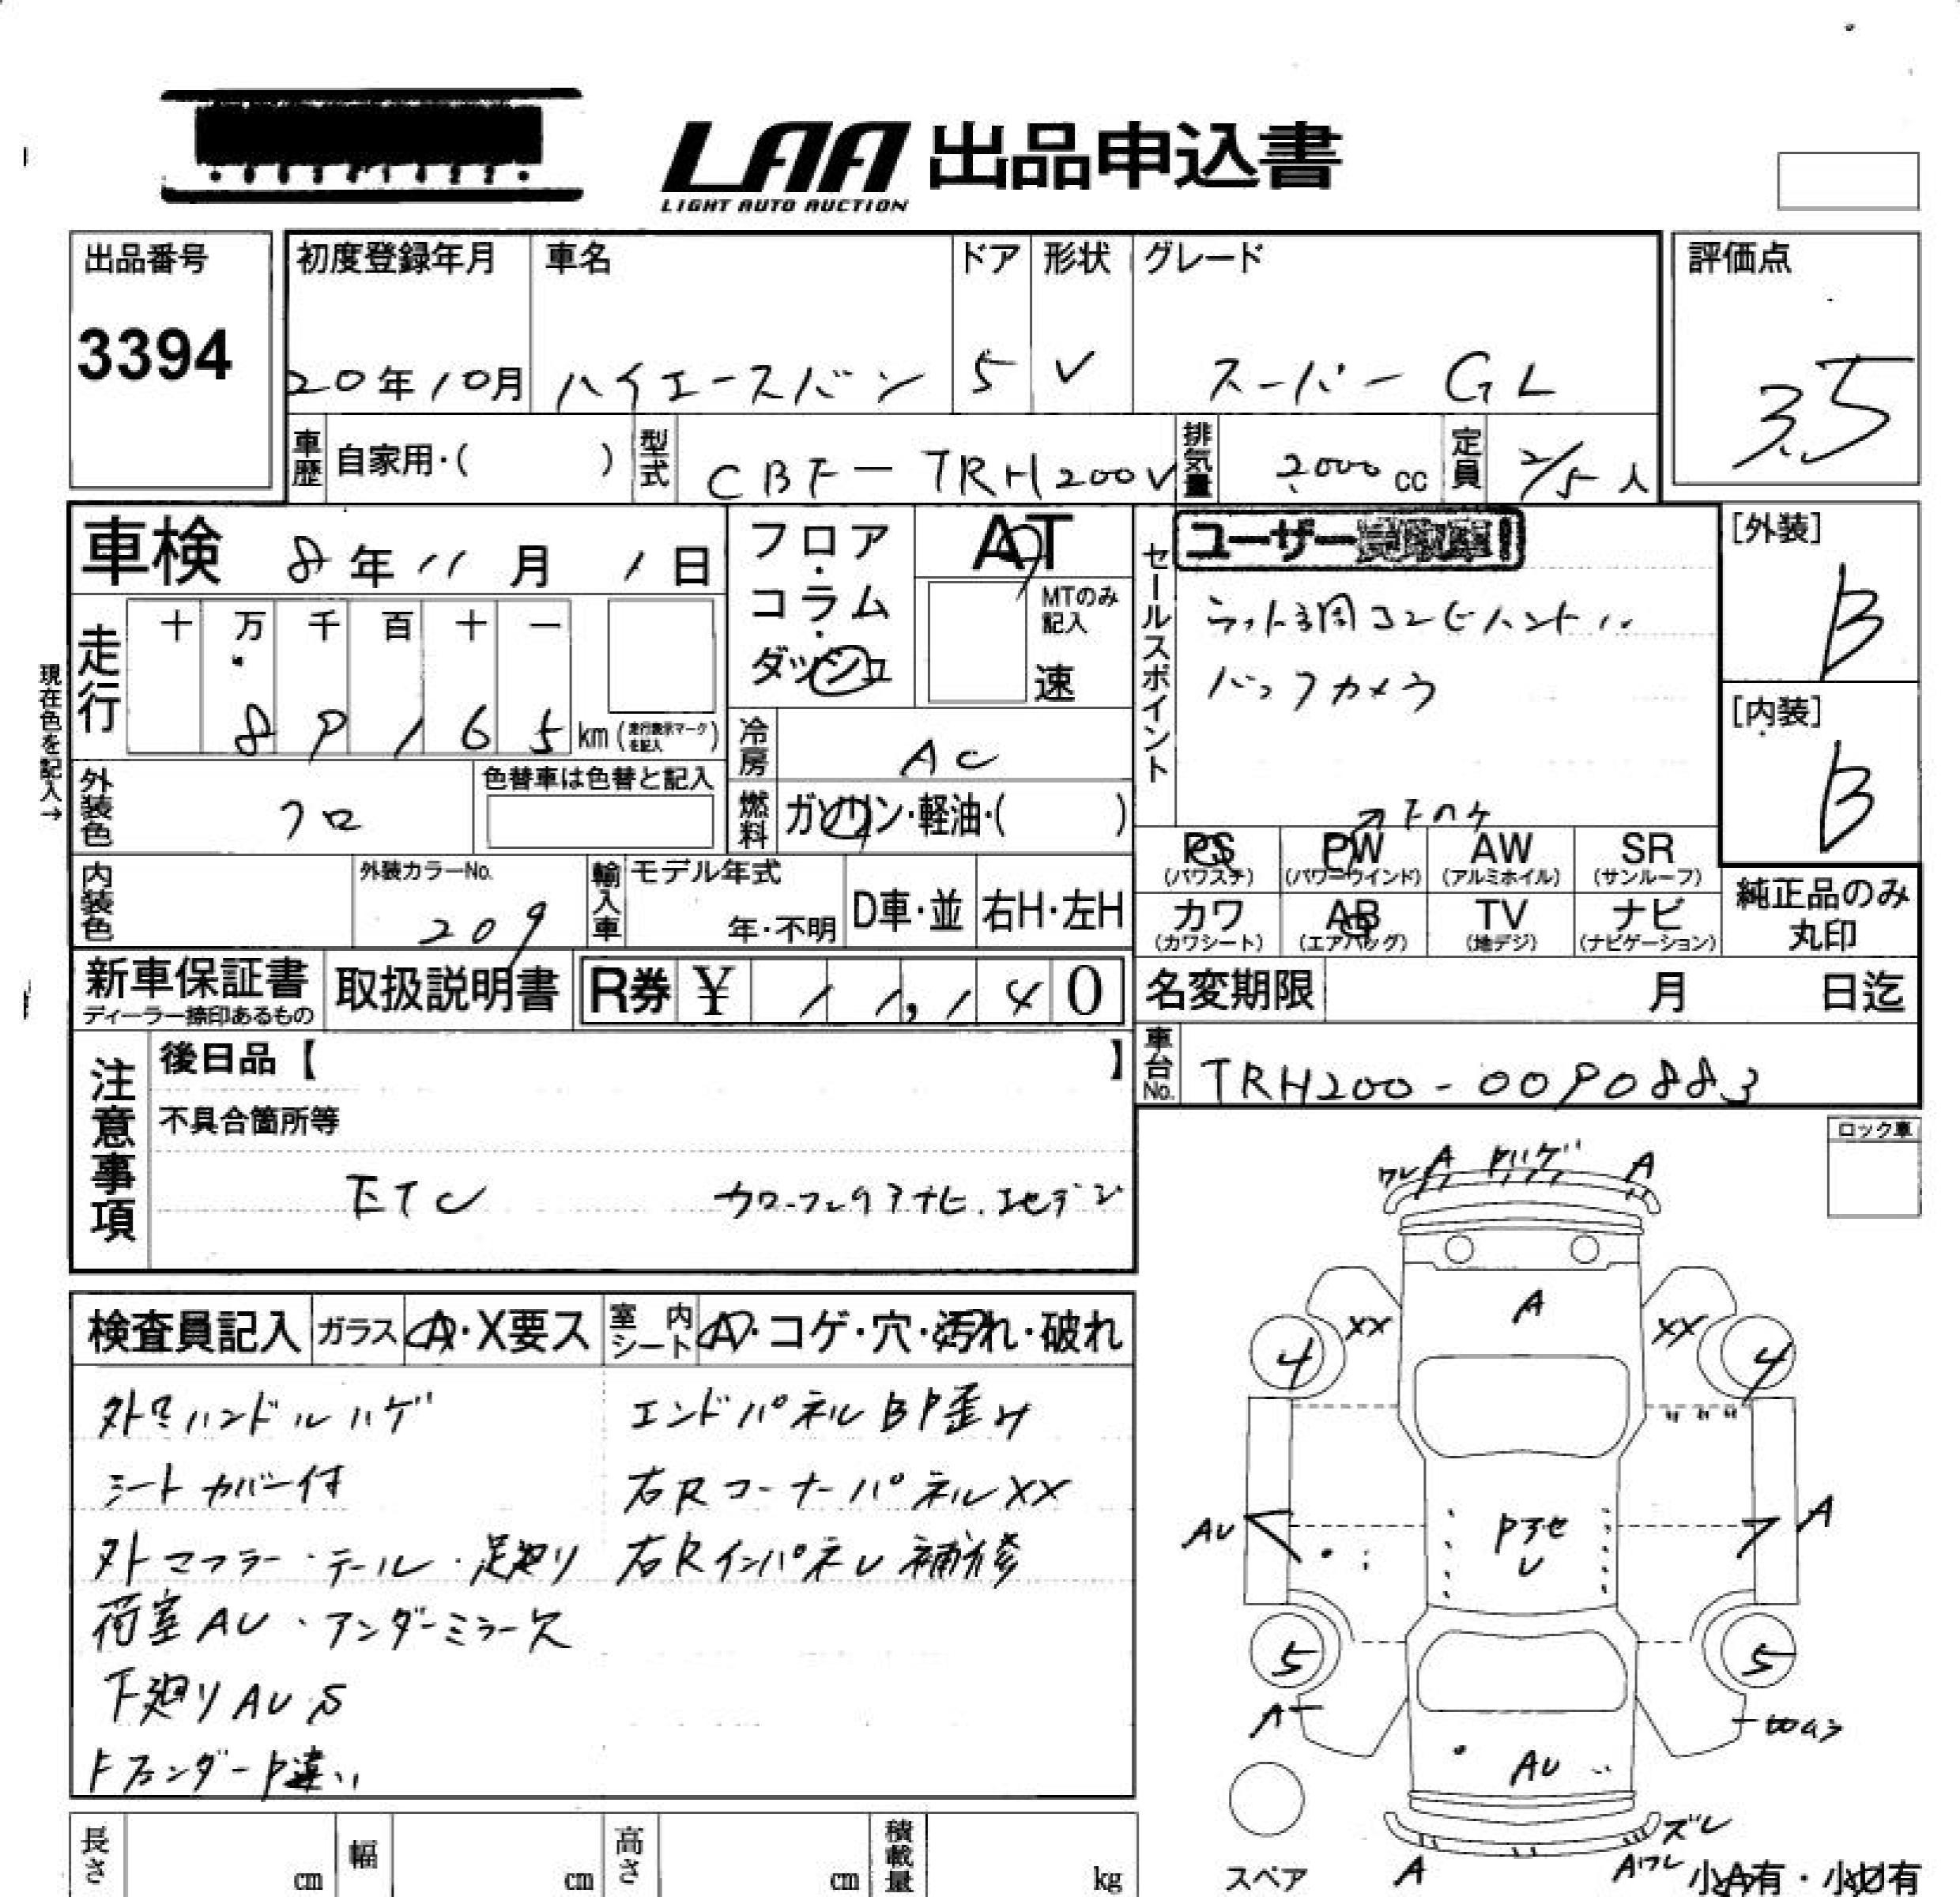 LAA 出品申込書
LIGHT AUTO AUCTION
出品番号
3394
初度登録年月
20年10月
車名
ハイエースバン
ドア
5
形状
V
グレード
スーパー GL
評価点
3.5
車歴
自家用・( )
型式
CBF-TRH200V
排気量
2,000 cc
定員
2/5 人
車検 8年11月1日
フロア・コラム・ダッシュ
AT
MTのみ記入
速
セールスポイント
ユーザー
バックカメラ
[外装]
B
[内装]
B
現在色を記入→
走行
十 万 千 百 十 一
8 9 1 6 5 km (走行表示マークを記入)
冷房
AC
外装色
クロ
色替車は色替と記入
燃料
ガソリン・軽油・( )
PS
(パワステ)
PW
(パワーウインド)
AW
(アルミホイル)
SR
(サンルーフ)
カワ
(カワシート)
AB
(エアバッグ)
TV
(地デジ)
ナビ
(ナビゲーション)
純正品のみ
丸印
内装色
外装カラーNo.
209
輸入車
モデル年式
年・不明
D車・並
右H・左H
新車保証書
ディーラー捺印あるもの
取扱説明書
R券 ¥ 11,140
名変期限 月 日迄
車台No.
TRH200-0090883
注意事項
後日品【 】
不具合箇所等
ETC
ロック車
検査員記入
ガラス
A・X要ス
室内シート
A・コゲ・穴・汚れ・破れ
外Fハンドルハゲ
シートカバー付
外マフラー・テール・足廻り
荷室AU・アンダーミラー欠
下廻りAUS
FフェンダーP違い
エンドパネルBP歪み
右RコーナーパネルXX
右Rインパネル補修
ワレ A A
A
XX XX
4 4
AU A
Pフセ
U
5 5
A
AU
ズレ
A Aワレ
スペア
小A有・小U有
長さ cm
幅 cm
高さ cm
積載量 kg